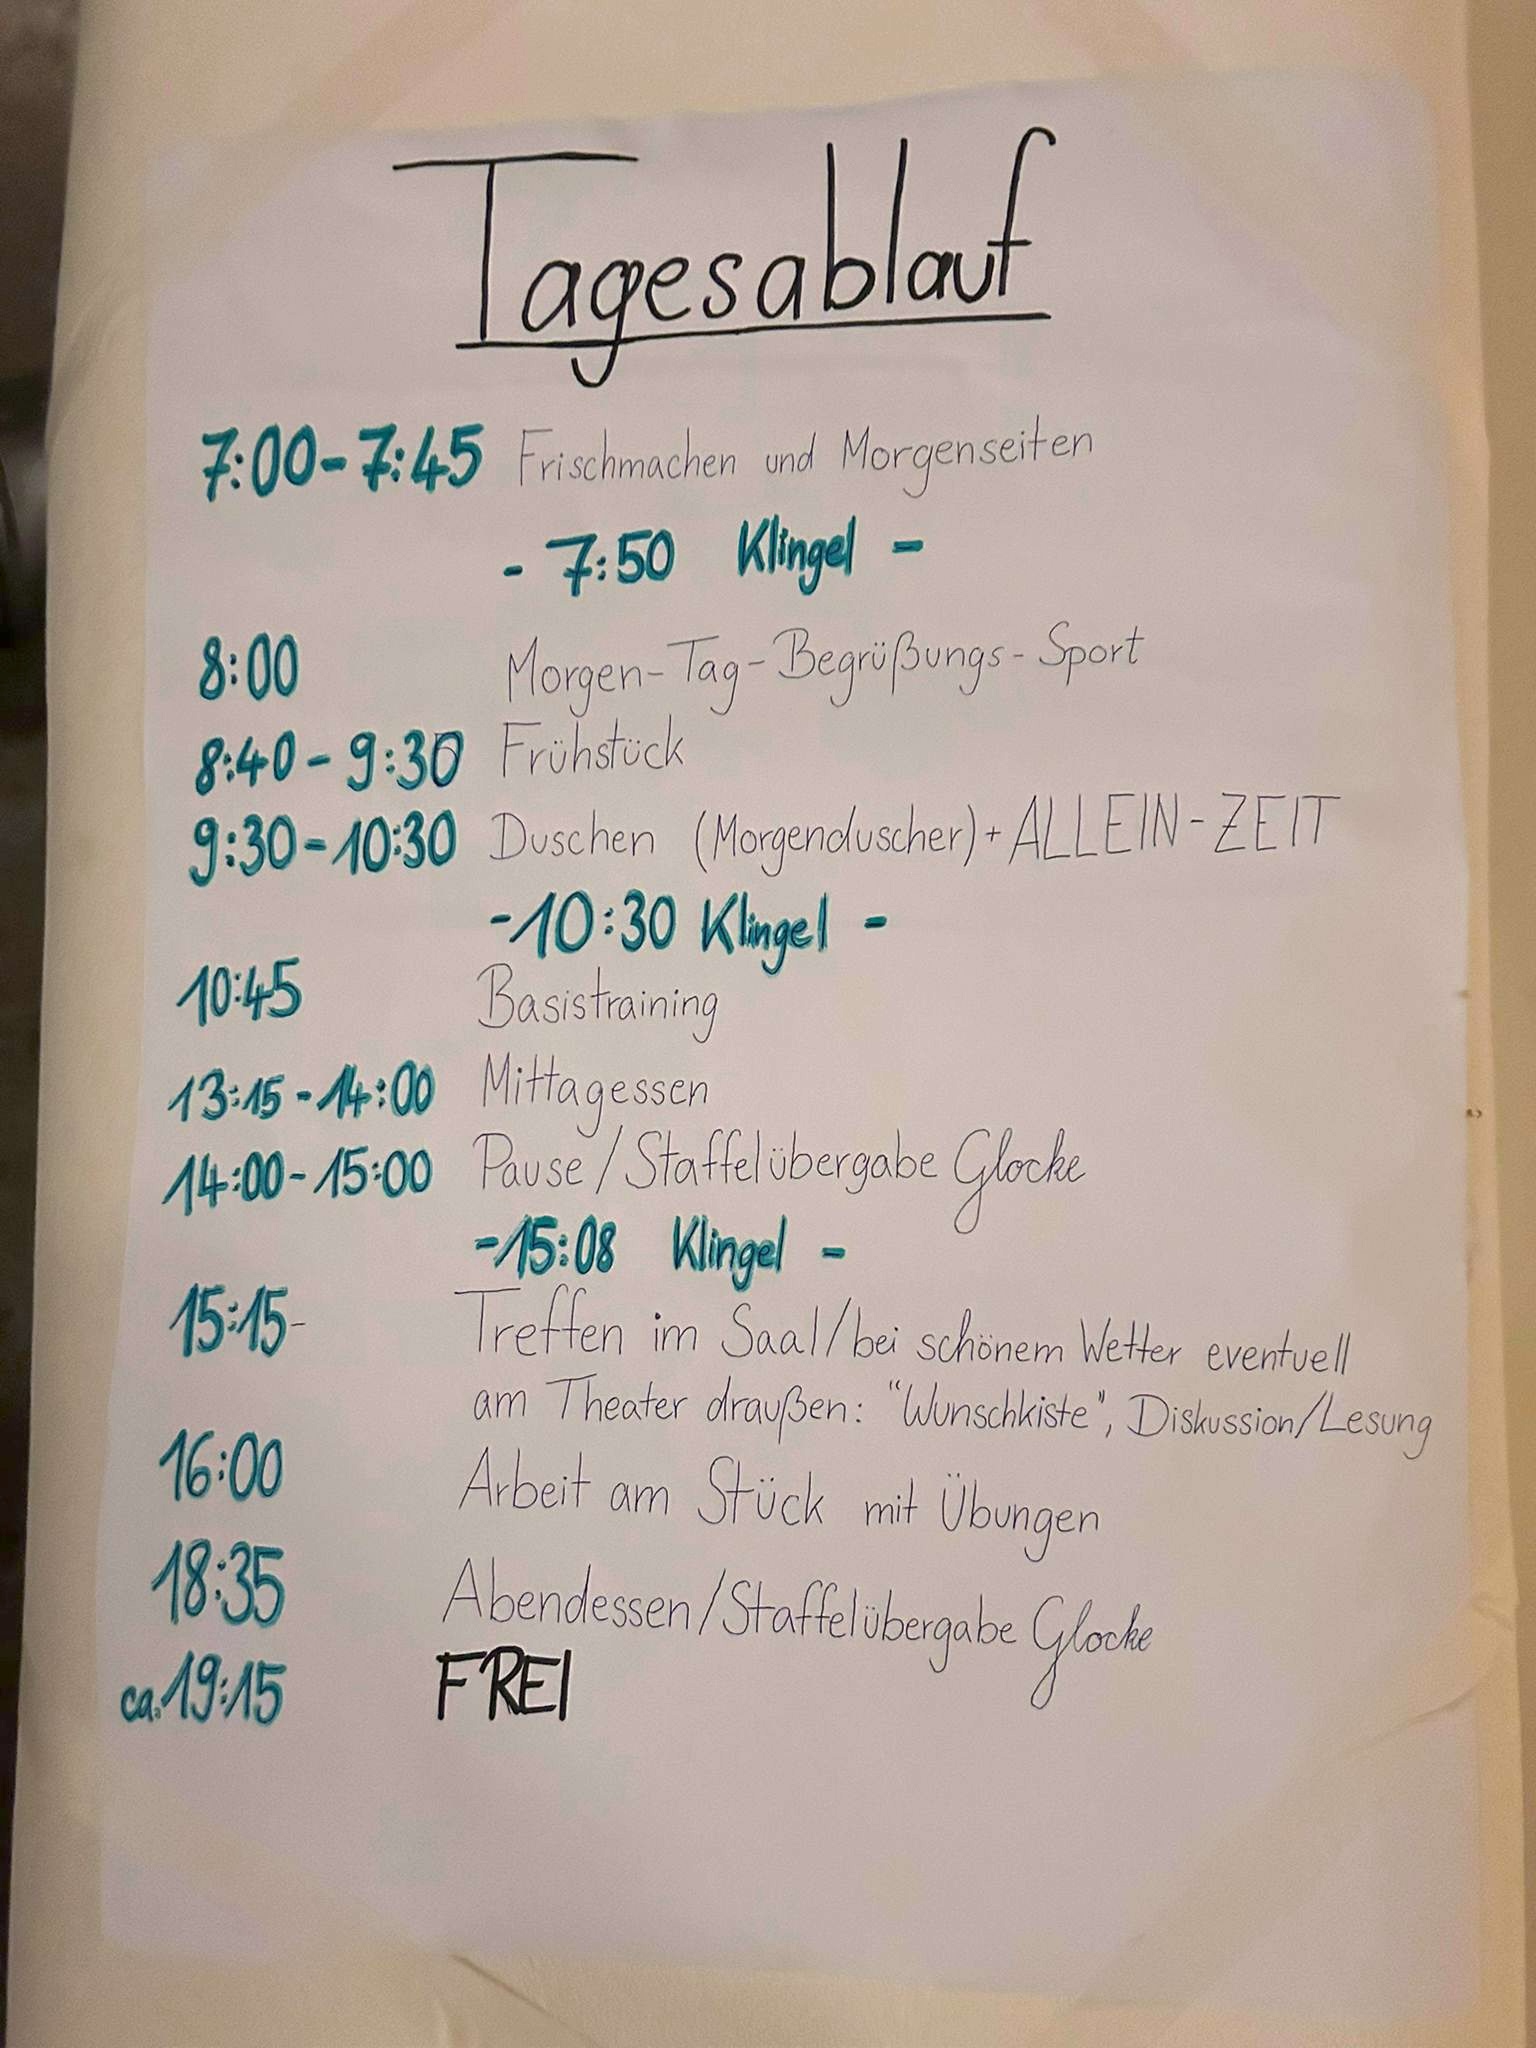 Tagesablauf
7:00 - 7:45 Frischmachen und Morgenseiten
- 7:50 Klingel -
8:00 Morgen-Tag-Begrüßungs-Sport
8:40 - 9:30 Frühstück
9:30 - 10:30 Duschen (Morgenduscher) + ALLEIN-ZEIT
- 10:30 Klingel -
10:45 Basistraining
13:15 - 14:00 Mittagessen
14:00 - 15:00 Pause/Staffelübergabe Glocke
- 15:08 Klingel -
15:15- Treffen im Saal/bei schönem Wetter eventuell
am Theater draußen: "Wunschkiste", Diskussion/Lesung
16:00 Arbeit am Stück mit Übungen
18:35 Abendessen/Staffelübergabe Glocke
ca. 19:15 FREI